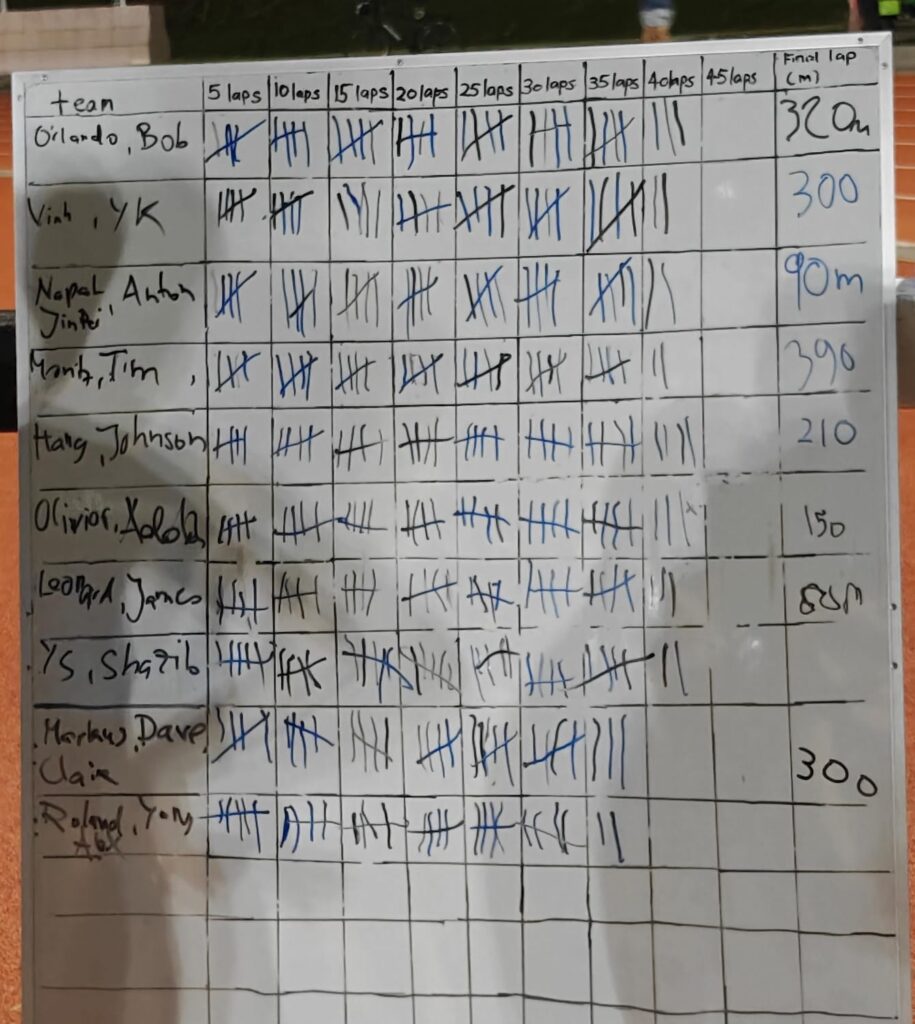 team 5 laps 10 laps 15 laps 20 laps 25 laps 30 laps 35 laps 40 laps 45 laps Final lap
(m)
Orlando, Bob 320m
Vinh, YK 300
Nopal, Anton 90m
Jinpei
Moritz, Tim, 390
Hang, Johnson 210
Olivior, 150
Leonard, James
YS, Shazib
Markus, Dave,
Clair 300
Roland, Yong
Alex